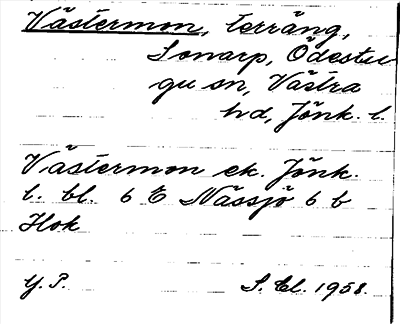 Västermon, terräng,
Sonarp, Ödestu
gu sn, Västra
hd, Jönk. l.
Västermon ek. Jönk.
l. bl. 6 E Nässjö 6 b
Hok
Y. P. S. El. 1958.